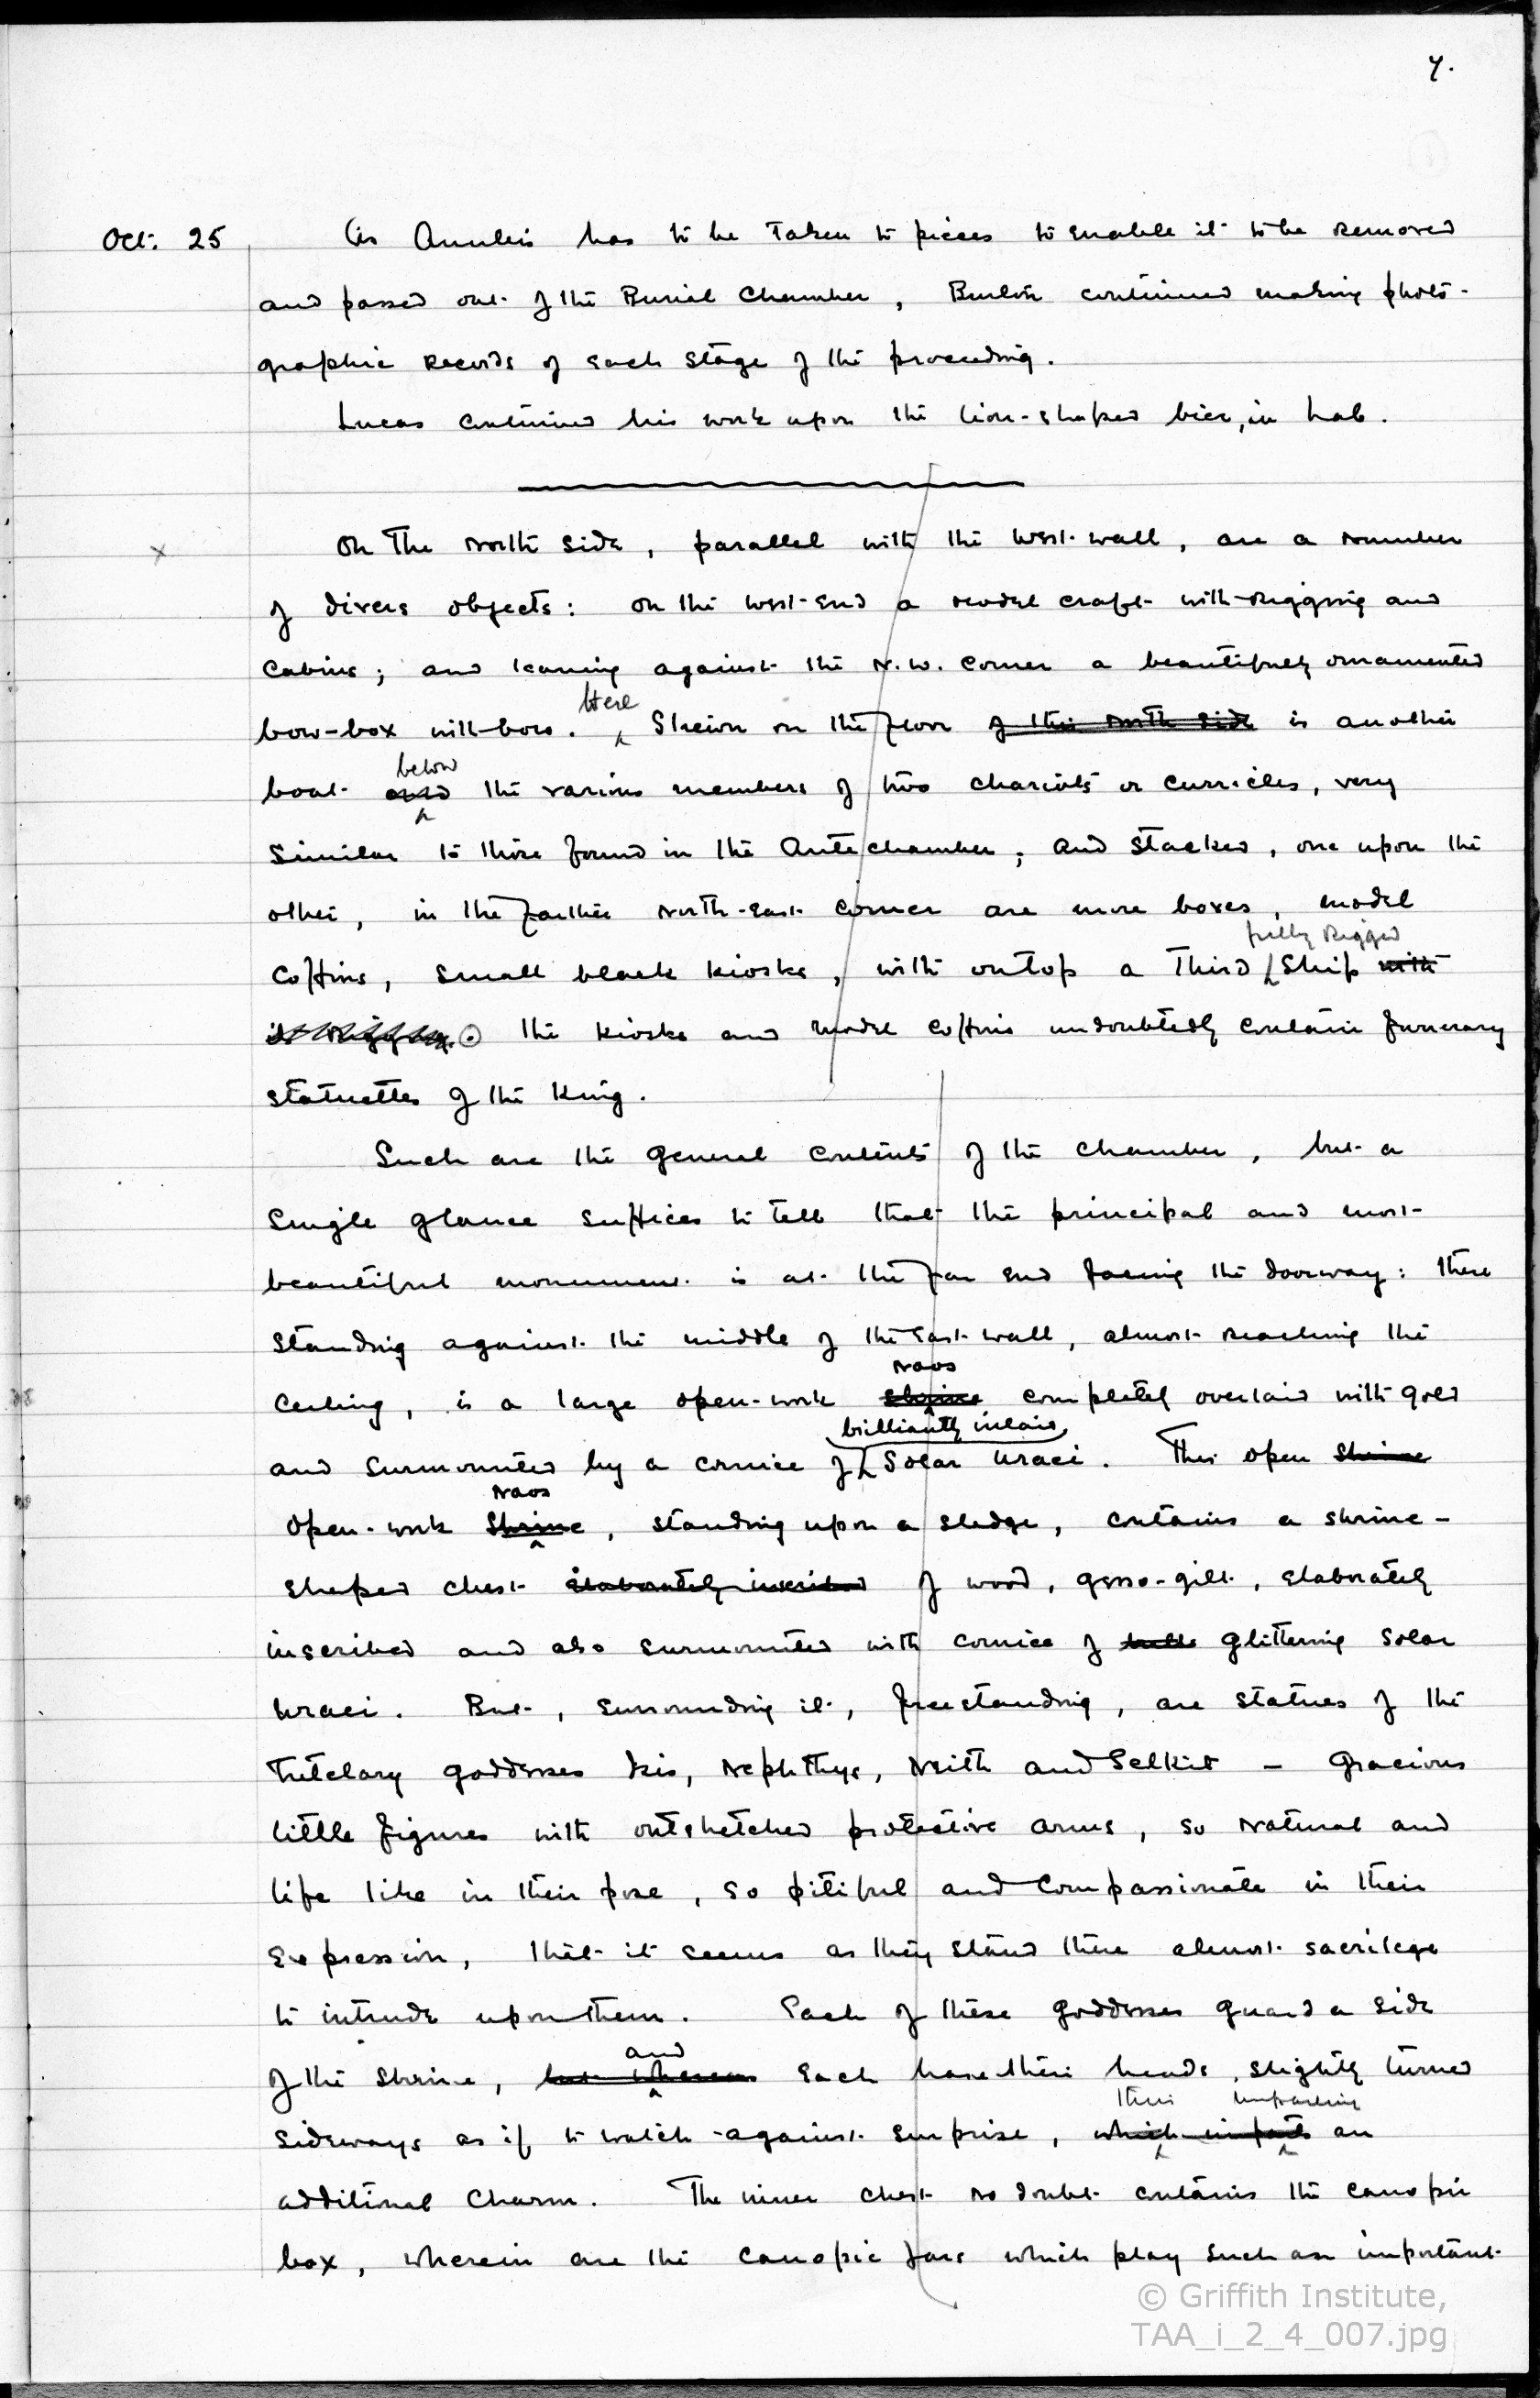 7.
Oct. 25 As Anubis has to be taken to pieces to enable it to be removed
and passed out of the Burial Chamber, Burton continued making photo-
graphic records of each stage of the proceeding.
Lucas continued his work upon the lion-shaped bier, in Lab.
x On The North side, parallel with the West wall, are a number
of divers objects: on the west end a model craft with rigging and
cabins; and leaning against the N.W. corner a beautifully ornamented
Here
bow-box with bows. Strewn on the floor of the north side is another
below
boat and the various members of two chariots or curricles, very
similar to those found in the Antechamber; and stacked, one upon the
other, in the farther north-east corner are more boxes, model
fully rigged
coffins, small black kiosks, with on top a third ship with
it rigging. The kiosks and model coffins undoubtedly contain funerary
statuettes of the King.
Such are the general contents of the chamber, but a
single glance suffices to tell that the principal and most
beautiful monument is at the far end facing the doorway: there
standing against the middle of the East wall, almost reaching the
Naos
ceiling, is a large open-work shrine completely overlaid with gold
brilliantly inlaid
and surmounted by a cornice of solar uraei. This open shrine
Naos
open-work shrine, standing upon a sledge, contains a shrine-
shaped chest elaborately inscribed of wood, gesso-gilt, elaborately
inscribed and also surmounted with cornice of glittering solar
uraei. But, surrounding it, freestanding, are statues of the
tutelary goddesses Isis, Nephthys, Neith and Selkit - gracious
little figures with outstretched protective arms, so natural and
life like in their pose, so pitiful and compassionate in their
expression, that it seems as they stand there almost sacrilege
to intrude upon them. Each of these goddesses guard a side
and
of the shrine, but whereas each have their heads, slightly turned
this imparting
sideways as if to watch against surprise, which imparts an
additional charm. The inner chest no doubt contains the canopic
box, wherein are the canopic jars which play such an important
© Griffith Institute,
TAA_i_2_4_007.jpg